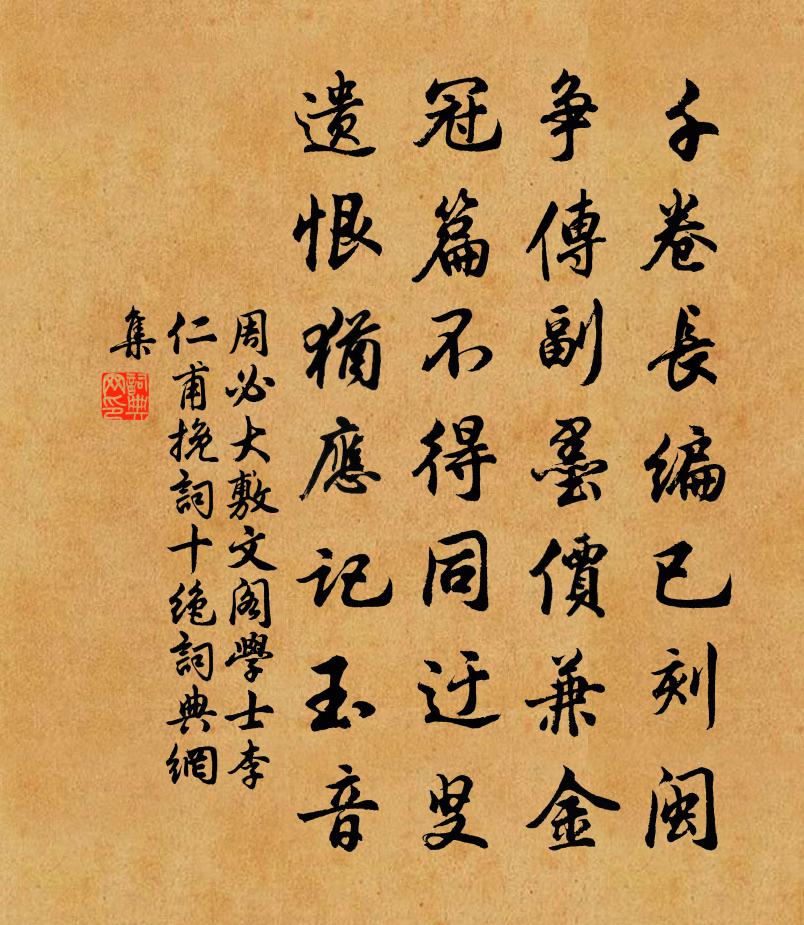 千卷長編已刻閩
争傳副墨價兼金
冠篇不得同迂叟
遺恨猶應記玉音
周必大敷文閣學士李
仁甫挽詞十絶詞典網
集
詞典網印